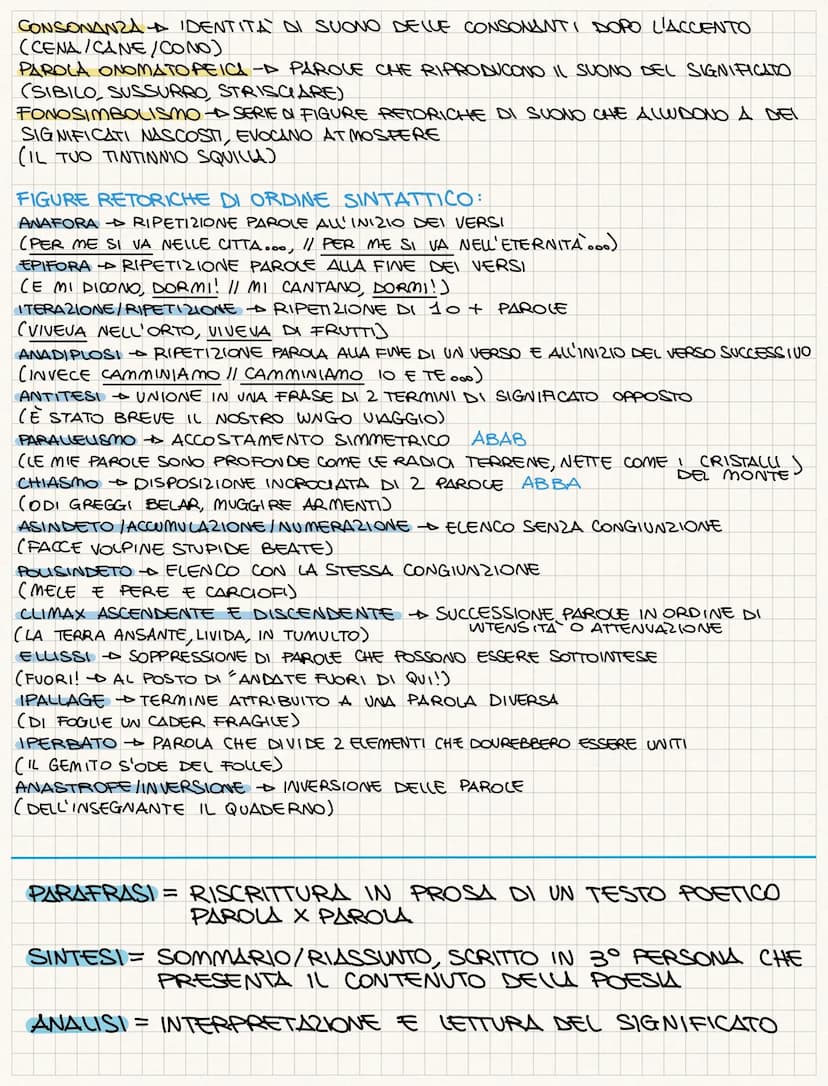 CONSONANZA → IDENTITÀ DI SUONO DELLE CONSONANTI DOPO L'ACCENTO
(CENA/CANE/CONO)
PAROLA ONOMATOPEICA → PAROLE CHE RIPRODUCONO IL SUONO DEL SIGNIFICATO
(SIBILO, SUSSURRO, STRISCIARE)
FONOSIMBOLISMO → SERIE DI FIGURE RETORICHE DI SUONO CHE ALLUDONO A DEI
SIGNIFICATI NASCOSTI, EVOCANO ATMOSFERE
(IL TUO TINTINNIO SQUILLA)
FIGURE RETORICHE DI ORDINE SINTATTICO:
ANAFORA → RIPETIZIONE PAROLE ALL'INIZIO DEI VERSI
(PER ME SI VA NELLE CITTA..., // PER ME SI VA NELL'ETERNITÀ...)
EPIFORA → RIPETIZIONE PAROLE ALLA FINE DEI VERSI
(E MI DICONO, DORMI! // MI CANTANO, DORMI!)
ITERAZIONE/RIPETIZIONE → RIPETIZIONE DI 1 O + PAROLE
(VIVEVA NELL'ORTO, VIVEVA DI FRUTTI)
ANADIPLOSI → RIPETIZIONE PAROLA ALLA FINE DI UN VERSO E ALL'INIZIO DEL VERSO SUCCESSIVO
(INVECE CAMMINIAMO // CAMMINIAMO IO E TE...)
ANTITESI → UNIONE IN UNA FRASE DI 2 TERMINI DI SIGNIFICATO OPPOSTO
(È STATO BREVE IL NOSTRO LUNGO VIAGGIO)
PARALLELISMO → ACCOSTAMENTO SIMMETRICO ABAB
(LE MIE PAROLE SONO PROFONDE COME LE RADICI TERRENE, NETTE COME I CRISTALLI DEL MONTE)
CHIASMO → DISPOSIZIONE INCROCIATA DI 2 PAROLE ABBA
(ODI GREGGI BELAR, MUGGIRE ARMENTI)
ASINDETO/ACCUMULAZIONE/NUMERAZIONE → ELENCO SENZA CONGIUNZIONE
(FACCE VOLPINE STUPIDE BEATE)
POLISINDETO → ELENCO CON LA STESSA CONGIUNZIONE
(MELE E PERE E CARCIOFI)
CLIMAX ASCENDENTE E DISCENDENTE → SUCCESSIONE PAROLE IN ORDINE DI
INTENSITÀ O ATTENUAZIONE
(LA TERRA ANSANTE, LIVIDA, IN TUMULTO)
ELLISSI → SOPPRESSIONE DI PAROLE CHE POSSONO ESSERE SOTTOINTESE
(FUORI! → AL POSTO DI "ANDATE FUORI DI QUI!)
IPALLAGE → TERMINE ATTRIBUITO A UNA PAROLA DIVERSA
(DI FOGLIE UN CADER FRAGILE)
IPERBATO → PAROLA CHE DIVIDE 2 ELEMENTI CHE DOVREBBERO ESSERE UNITI
(IL GEMITO S'ODE DEL FOLLE)
ANASTROFE/INVERSIONE → INVERSIONE DELLE PAROLE
(DELL'INSEGNANTE IL QUADERNO)
PARAFRASI = RISCRITTURA IN PROSA DI UN TESTO POETICO
PAROLA X PAROLA
SINTESI = SOMMARIO/RIASSUNTO, SCRITTO IN 3° PERSONA CHE
PRESENTA IL CONTENUTO DELLA POESIA
ANALISI = INTERPRETAZIONE E LETTURA DEL SIGNIFICATO